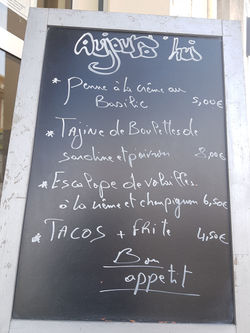 Aujourd'hui
* Penne à la crème au
Basilic 5,00€
* Tajine de Boulettes de
sardine et poivron 8,00€
* Escalope de volailles
à la crème et champignon 6,50€
* TACOS + frite 4,50€
Bon
appetit